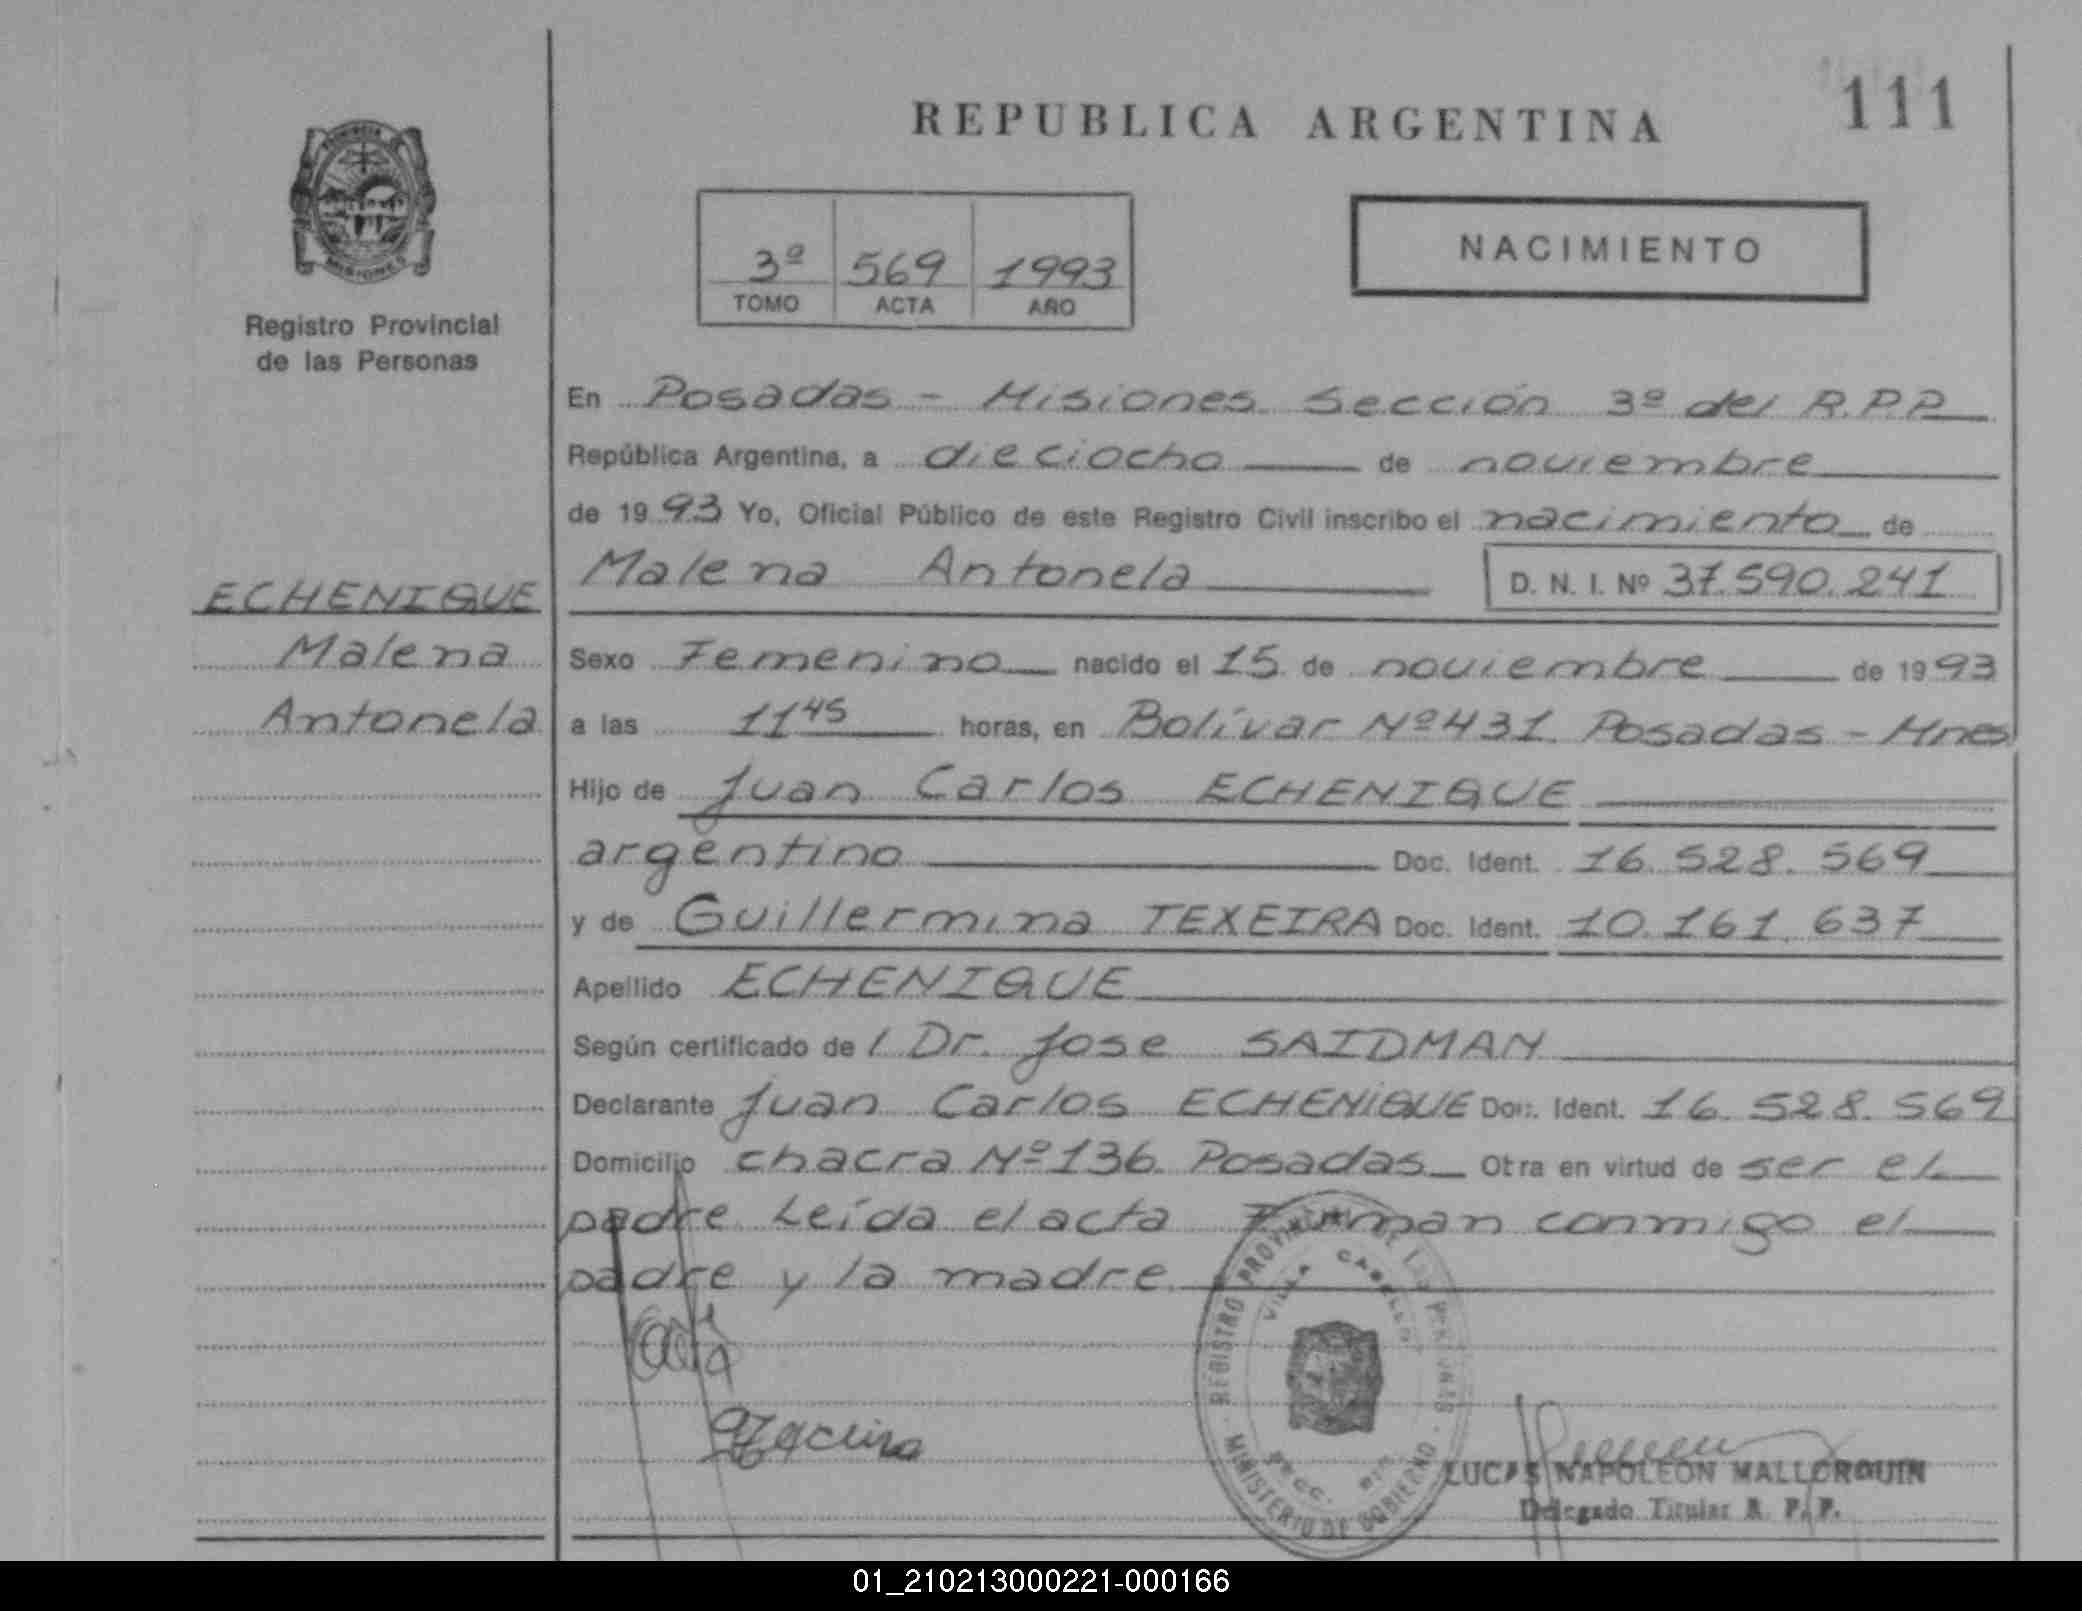 REPUBLICA ARGENTINA
111
PROVINCIA
MISIONES
Registro Provincial
de las Personas
3º 569 1993
TOMO ACTA AÑO
NACIMIENTO
En Posadas - Misiones Sección 3º del R.P.P
República Argentina, a dieciocho de noviembre
de 1993 Yo, Oficial Público de este Registro Civil inscribo el nacimiento de
Malena Antonela D. N. I. Nº 37.590.241
ECHENIQUE
Malena
Antonela
Sexo Femenino nacido el 15 de noviembre de 1993
a las 11 45 horas, en Bolívar Nº 431. Posadas - Mnes
Hijo de Juan Carlos ECHENIQUE
argentino Doc. Ident. 16.528.569
y de Guillermina TEXEIRA Doc. Ident. 10.161.637
Apellido ECHENIQUE
Según certificado de / Dr. Jose SAIDMAN
Declarante Juan Carlos ECHENIQUE Doc. Ident. 16.528.569
Domicilio chacra Nº 136. Posadas Otra en virtud de ser el
padre Leída el acta Firman conmigo el
padre y la madre.
REGISTRO PROVINCIAL DE LAS PERSONAS
VILLA CABELLO
MINISTERIO DE GOBIERNO
LUCAS NAPOLEON MALLORQUIN
Delegado Titular R. P. P.
01_210213000221-000166